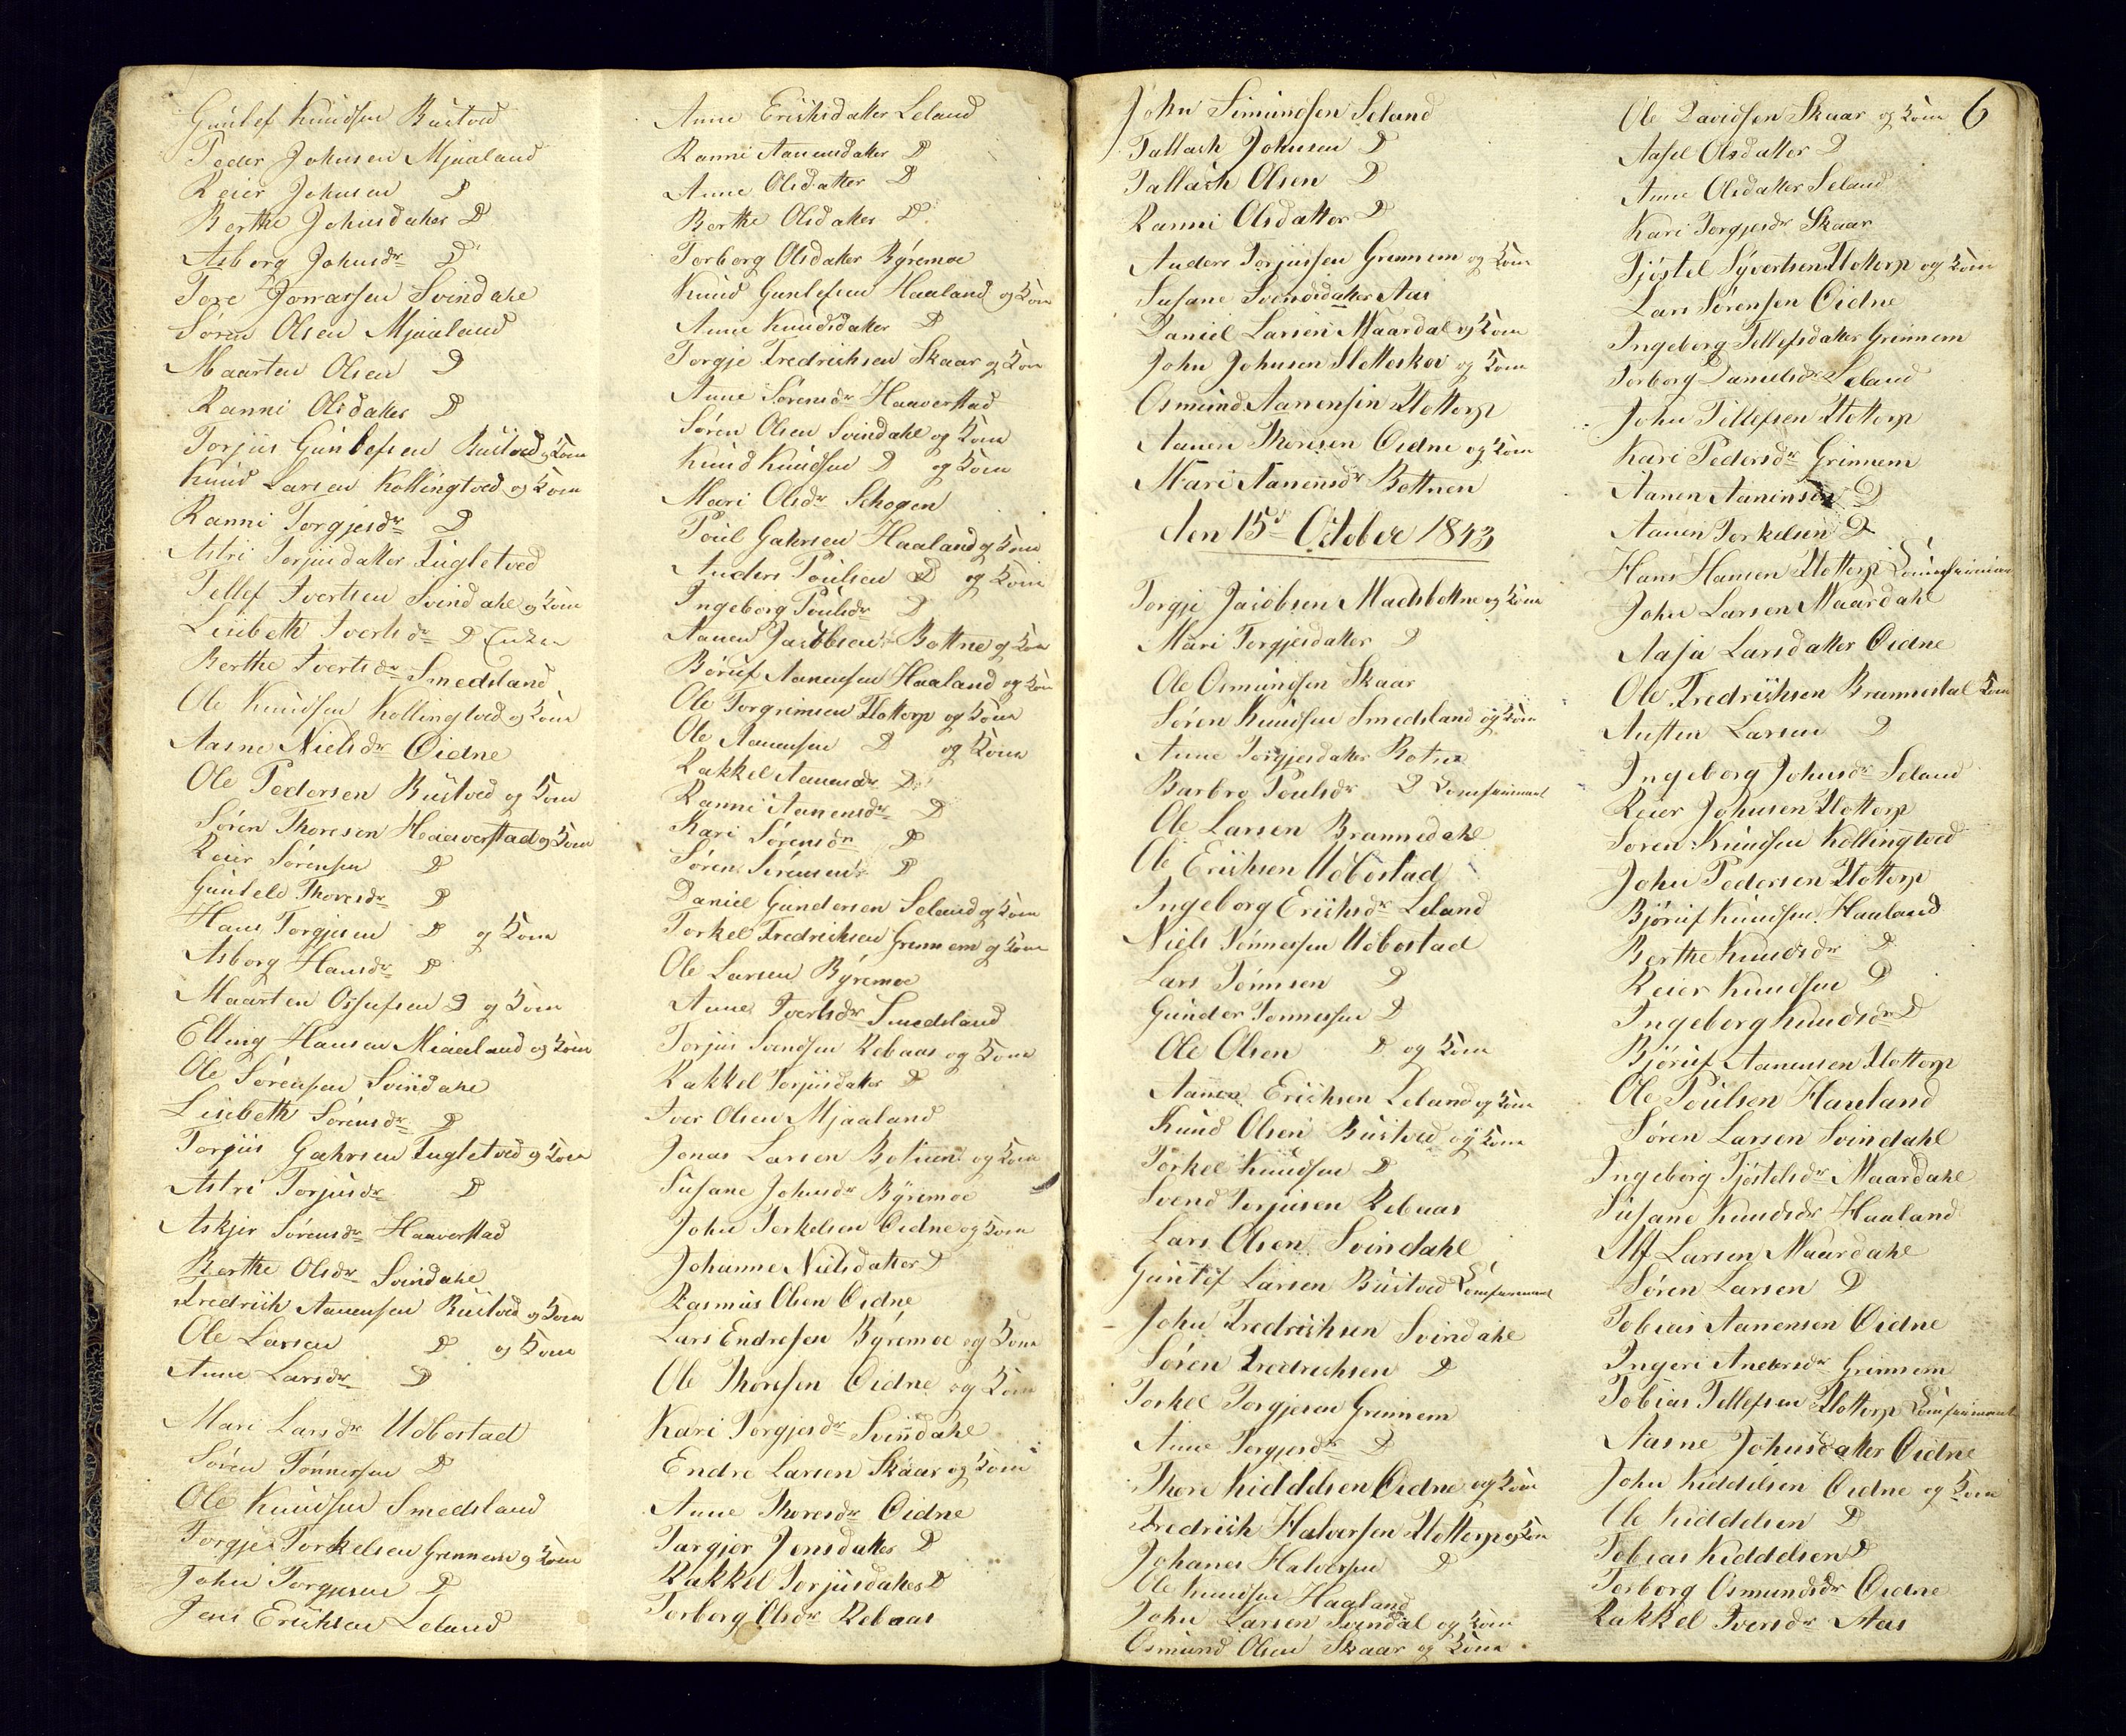 Gunlef Knudsen Bustved
Peder Johnsen Mjaaland
Reier Johnsen D
Berthe Johnsdatter D
Asborg Johnsdr D
Tore Jonassen Svindahl
Søren Olsen Mjaaland
Maarten Olsen D
Ranni Olsdatter D
Torjus Gunlefsen Bustved og Kone
Knud Larsen Kollingtved og Kone
Ranni Torgjesdr D
Astri Torjusdatter Fugletved
Tellef Ivertsen Svindahl og Kone
Lisebeth Ivertsdr D Enken
Berthe Ivertsdr Smedsland
Ole Knudsen Kollingtved og Kone
Aasne Nielsdr Oidne
Ole Pedersen Bustved og Kone
Søren Thoresen Haaverstad og Kone
Reier Sørensen D
Gunteld Thoresdr D
Hans Torgjesen D og Kone
Asborg Hansdr D
Maarten Ossufsen D og Kone
Elling Hansen Miaaland og Kone
Ole Sørensen Svindahl
Lisebeth Sørensdr D
Torjus Gahrsen Fugletved og Kone
Astri Torjusdr D
Askjer Sørensdr Haaverstad
Berthe Olsdr Svindahl
Fredrich Aanensen Bustved og Kone
Ole Larsen D og Kone
Anne Larsdr D
Mari Larsdr Udbostad
Søren Tønnessen D
Ole Knudsen Smedsland
Torgje Torkelsen Grennem og Kone
John Torgjesen D
Jens Erichsen Leland
Anne Erichsdatter Leland
Ranni Aanensdatter D
Anne Olsdatter D
Berthe Olsdatter D
Torborg Olsdatter Býremoe
Knud Gunlefsen Haaland og Kone
Anne Knudsdatter D
Torgje Fredrichsen Skaar og Kone
Anne Sørensdr Haaverstad
Søren Olsen Svindahl og Kone
Knud Knudsen D og Kone
Mari Olsdr Schogen
Poul Gahrsen Haaland og Kone
Anders Poulsen D og Kone
Ingeborg Poulsdr D
Aanen Jacobsen Bottne og Kone
Børuf Aanensen Haaland og Kone
Ole Torgrimsen Flottorp og Kone
Ole Aanensen D og Kone
Rakkel Aanensdr D
Ranni Aanensdr D
Kari Sørensdr D
Søren Sørensen D
Daniel Gundersen Seland og Kone
Torkel Fredrichsen Grennem og Kone
Ole Larsen Býremoe
Anne Ivertsdr Smedsland
Torjus Svendsen Rebaas og Kone
Rakkel Torjusdatter D
Iver Olsen Mjaaland
Jonas Larsen Botnene og Kone
Susane Johnsdr Býremoe
John Torkelsen Oidne og Kone
Johanne Nielsdatter D
Rasmus Olsen Oidne
Lars Endresen Býremoe og Kone
Ole Thoresen Oidne og Kone
Kari Torgjesdr Svindahl
Endre Larsen Skaar og Kone
Anne Thoresdr Oidne
Targjer Jensdatter D
Rakkel Torjusdatter D
Torborg Olsdr Rebaas
John Simundsen Seland
Tallach Johnsen D
Tallach Olsen D
Ranni Olsdatter D
Anders Torjussen Grennem og Kone
Susane Svendsdatter Aas
Daniel Larsen Maardal og Kone
John Johnsen Sletteskov og Kone
Osmund Aanensen Flottorp
Aanen Thoresen Oidne og Kone
Mari Aanensdr Bottnen
den 15d October 1843
Torgje Jacobsen Madsbottne og Kone
Mari Torgjesdatter D
Ole Osmundsen Skaar
Søren Knudsen Smedsland og Kone
Anne Torgjesdatter Botne
Barbro Poulsdr D Comfirmant
Ole Larsen Brannedahl
Ole Erichsen Udbostad
Ingeborg Erichsdr Leland
Niels Tønnessen Udbostad
Lars Tønnesen D
Gunder Tønnessen D
Ole Olsen D og Kone
Aanen Erichsen Leland og Kone
Knud Olsen Bustved og Kone
Torkel Knudsen D
Svend Torjusen Rebaas
Lars Olsen Svindahl
Gunlef Larsen Bustved Comfirmant
John Fredrichsen Svindahl
Søren Fredrichsen D
Torkel Torgjesen Grennem
Anne Torgjesdr D
Thore Kiddelsen Oidne og Kone
Fredrich Halversen Flottorp og Kone
Johanes Halversen D
Ole Knudsen Haaland
John Larsen Svindal og Kone
Osmund Olsen Skaar og Kone
Ole Davidsen Skaar og Kone 6
Aasel Olsdatter D
Anne Olsdatter Seland
Kari Torgjesdr Skaar
Tjøstel Sývertsen Flottorp og Kone
Lars Sørensen Oidne
Ingeborg Tellefsdatter Grinnem
Torborg Danielsdr Leland
John Tellefsen Flottorp
Kari Pedersdr Grinnem
Aanen Aaninsen D
Aanen Torkelsen D
Hans Hansen Flottorp Comfirmant
John Larsen Maardahl
Aasa Larsdatter Oidne
Ole Fredrichsen Brannesdal Kone
Austen Larsen D
Ingeborg Johnsdr Seland
Reier Johnsen Flottorp
Søren Knudsen Kollingtved
John Pedersen Flottorp
Bjøruf Knudsen Haaland
Berthe Knudsdr D
Reier Knudsen D
Ingeborg Knudsdr D
Bjøruf Aanensen Flottorp
Ole Poulsen Haaland
Søren Larsen Svindahl
Ingeborg Tjøstelsdr Maardahl
Susane Knudsdr Haaland
Alf Larsen Maardahl
Søren Larsen D
Tobias Aanensen Oidne
Ingeri Andersdr Grinnem
Tobias Tellefsen Flottorp Comfirmant
Aasne Johnsdatter Oidne
John Kiddelsen Oidne og Kone
Ole Kiddelsen D
Tobias Kiddelsen D
Torborg Osmundsdr Oidne
Rakkel Iversdr Aas